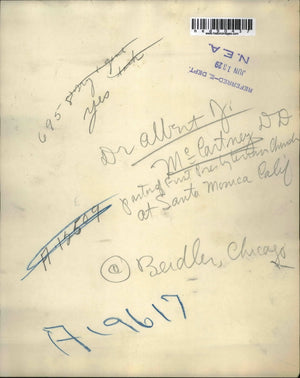 N.E.A.
JUN 13 29
REFERRED-E. DEPT.
695
yes
Dr Albert J.
McCartney DD
pastor First Presbyterian Church
at Santa Monica Calif
A 19617
© Beidler, Chicago
A19617